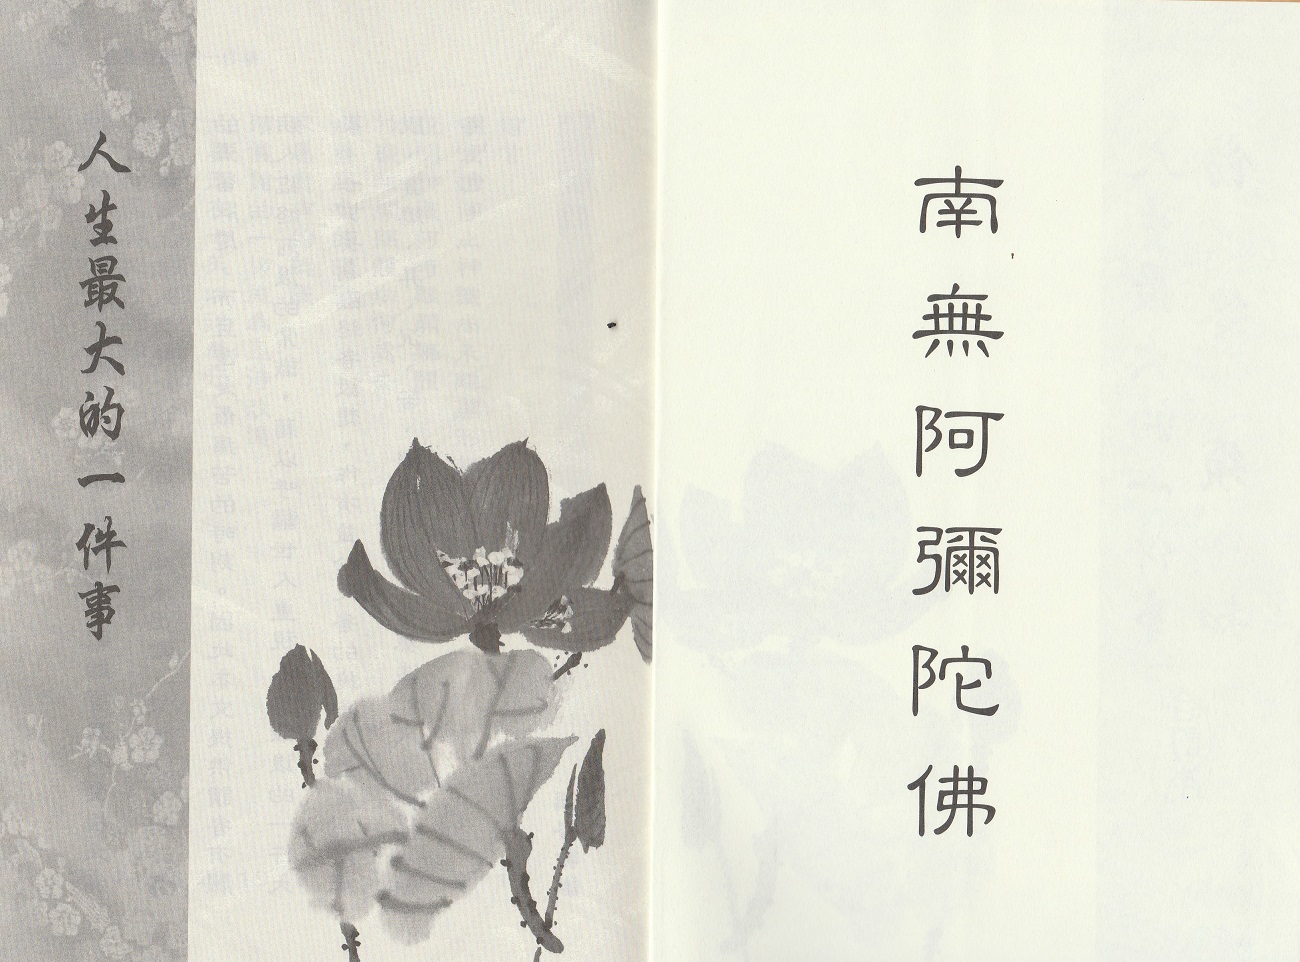 南無阿彌陀佛
人生最大的一件事